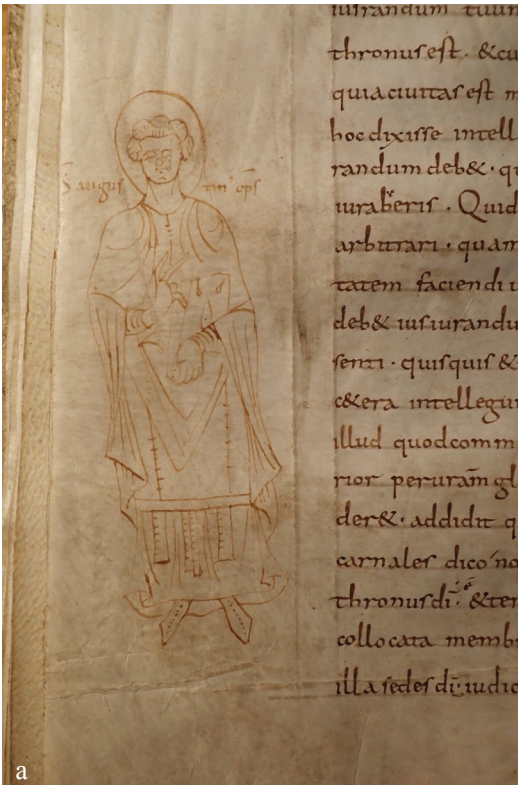 iusrandum tuum
thronus est · &cu
quia ciuitas est m
hoc dixisse intell
randum deb& · qu
iuraberis · Quid
arbitrari · quam
tatem faciendi u
deb& iusiurandu
senti · quisquis &
c&era intellegun
illud quod comm
rior per uram gl
der& · addidit q
carnales dico no
thronus dī · &ter
collocata memb
illa sedes dī iudic
S augus tin' eps
a